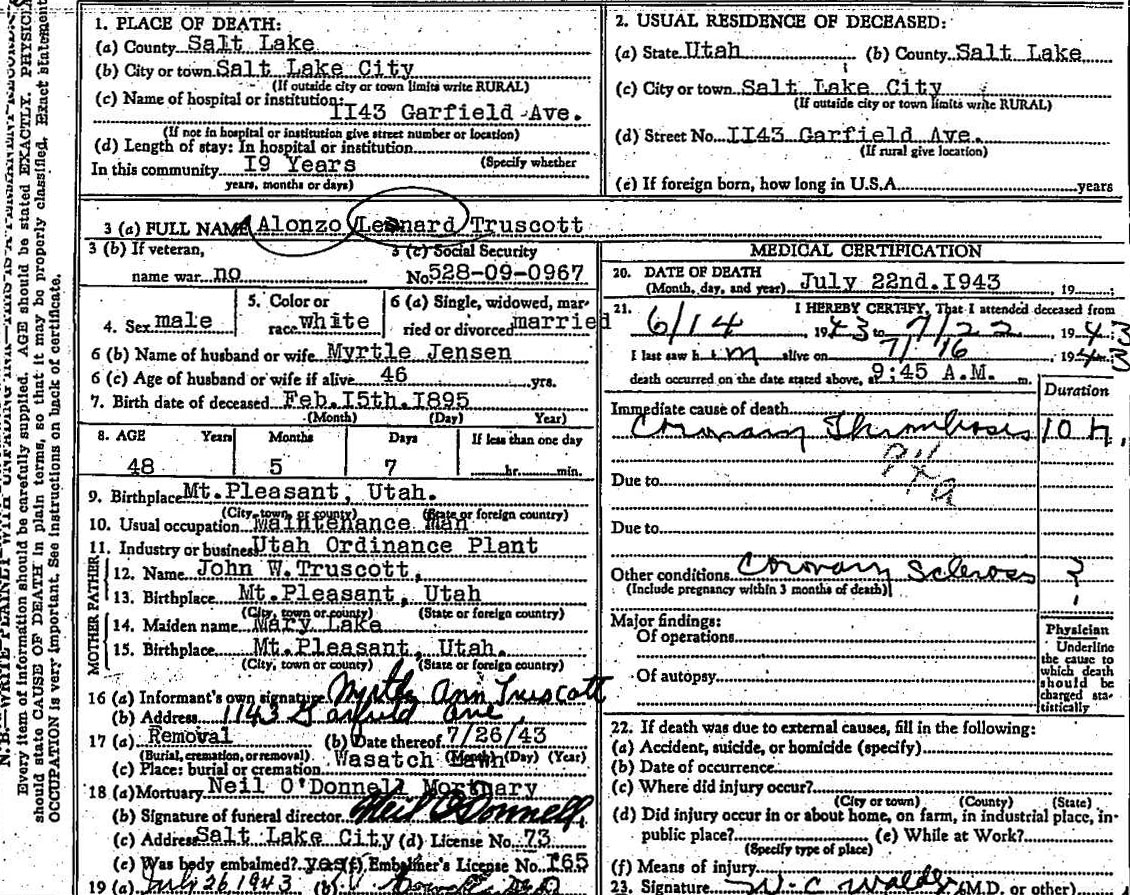 1. PLACE OF DEATH:
(a) County Salt Lake
(b) City or town Salt Lake City
(If outside city or town limits write RURAL)
(c) Name of hospital or institution:
II43 Garfield Ave.
(If not in hospital or institution give street number or location)
(d) Length of stay: In hospital or institution
(Specify whether
In this community I9 Years
years, months or days)
2. USUAL RESIDENCE OF DECEASED:
(a) State Utah (b) County Salt Lake
(c) City or town Salt Lake City
(If outside city or town limits write RURAL)
(d) Street No. II43 Garfield Ave.
(If rural give location)
(e) If foreign born, how long in U.S.A. years
3 (a) FULL NAME Alonzo Leonard Truscott
3 (b) If veteran,
name war no
3 (c) Social Security
No. 528-09-0967
4. Sex male
5. Color or
race white
6 (a) Single, widowed, mar-
ried or divorced married
6 (b) Name of husband or wife Myrtle Jensen
6 (c) Age of husband or wife if alive 46 yrs.
7. Birth date of deceased Feb.I5th.I895
(Month) (Day) Year)
8. AGE Years Months Days If less than one day
48 5 7 hr. min.
9. Birthplace Mt.Pleasant, Utah.
(City, town, or county) (State or foreign country)
10. Usual occupation Maintenance Man
11. Industry or business Utah Ordinance Plant
FATHER
12. Name John W.Truscott,
13. Birthplace Mt.Pleasant, Utah
(City, town or county) (State or foreign country)
MOTHER
14. Maiden name Mary Lake
15. Birthplace Mt.Pleasant, Utah.
(City, town or county) (State or foreign country)
16 (a) Informant's own signature Myrtle Ann Truscott
(b) Address 1143 Garfield Ave,
17 (a) Removal (b) Date thereof 7/26/43
(Burial, cremation, or removal). (Month) (Day) (Year)
(c) Place: burial or cremation Wasatch Lawn
18 (a) Mortuary Neil O'Donnell Mortuary
(b) Signature of funeral director Neil O'Donnell,
(c) Address Salt Lake City (d) License No. 73
(e) Was body embalmed? yes (f) Embalmer's License No. I65
19 (a) July 26 1943 (b)
MEDICAL CERTIFICATION
20. DATE OF DEATH
(Month, day, and year) July 22nd.I943 19
21. I HEREBY CERTIFY, That I attended deceased from
6/14 1943 to 7/22, 1943
I last saw him alive on 7/16, 1943
death occurred on the date stated above, at 9:45 A.M. m.
Duration
Immediate cause of death
Coronary Thrombosis 10 h,
Due to
Due to
Other conditions Coronary Sclerosis ?
(Include pregnancy within 3 months of death)
Major findings:
Of operations
Of autopsy
Physician
Underline
the cause to
which death
should be
charged sta-
tistically
22. If death was due to external causes, fill in the following:
(a) Accident, suicide, or homicide (specify)
(b) Date of occurrence
(c) Where did injury occur?
(City or town) (County) (State)
(d) Did injury occur in or about home, on farm, in industrial place, in-
public place? (e) While at Work?
(Specify type of place)
(f) Means of injury
23. Signature W. C. Walker M.D. or other)
Every item of information should be carefully supplied. AGE should be stated EXACTLY. PHYSICIA
should state CAUSE OF DEATH in plain terms, so that it may be properly classified. Exact statement
OCCUPATION is very important. See instructions on back of certificate.